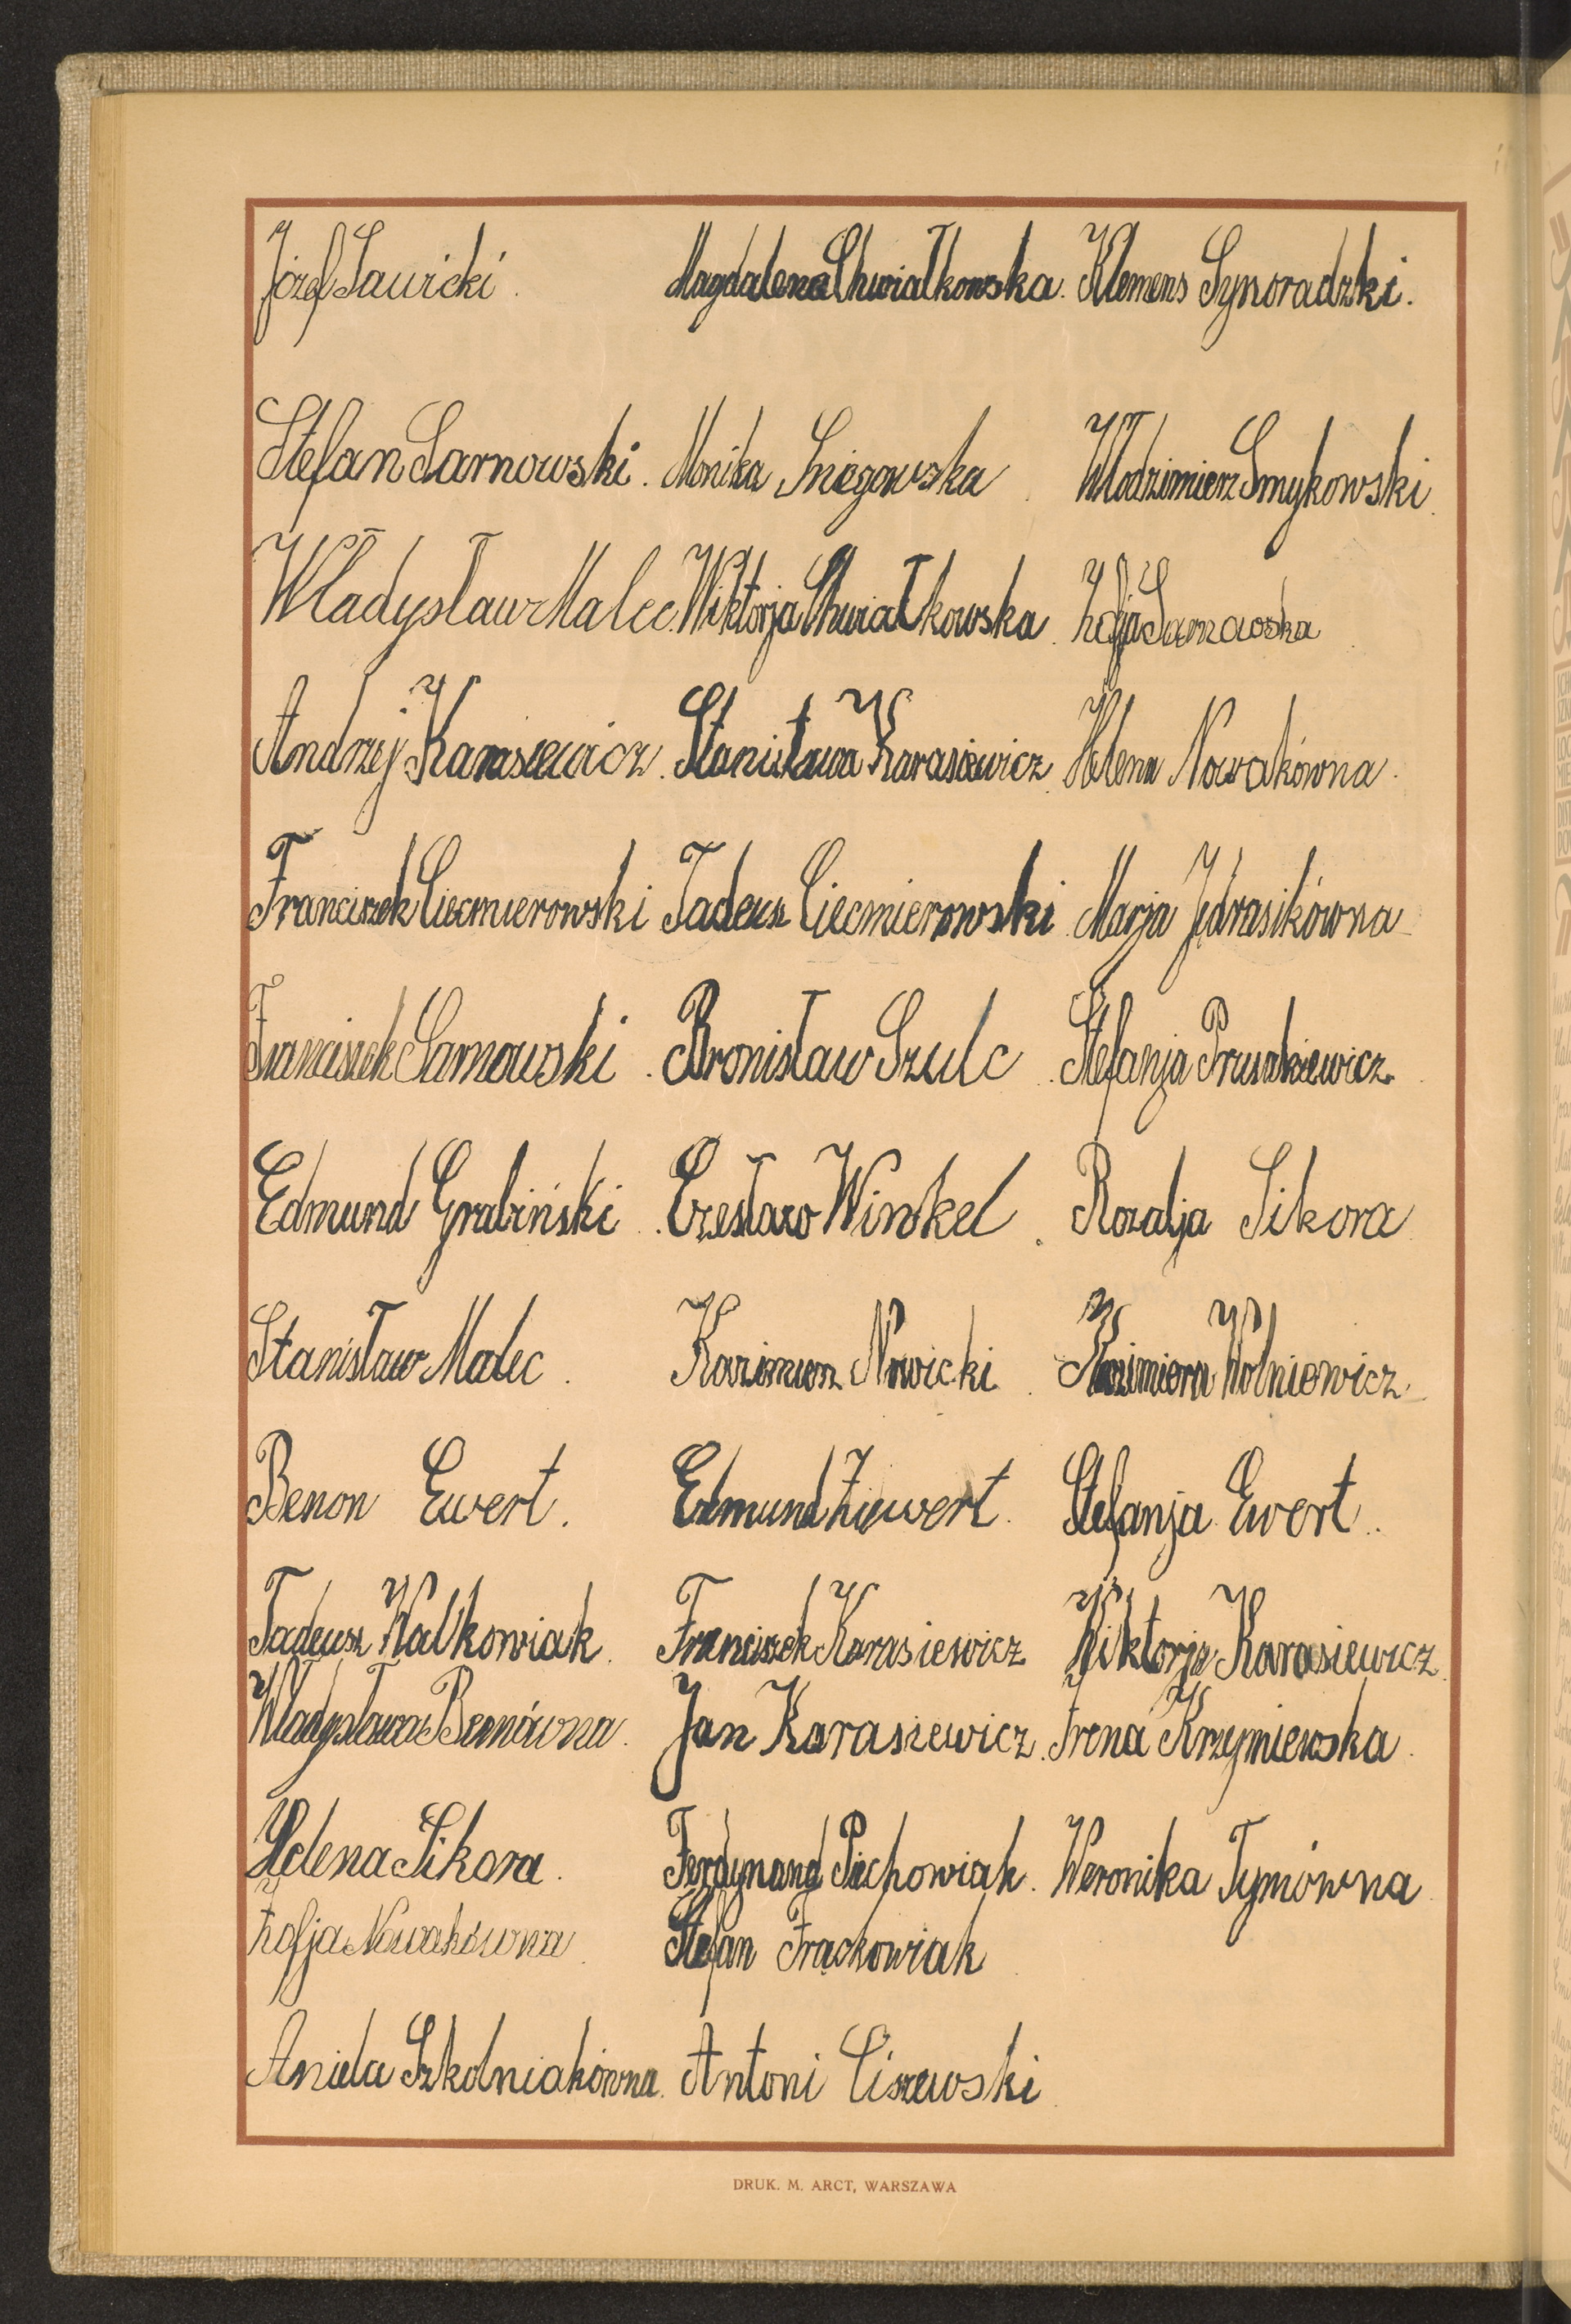 Józef Sawicki. Magdalena Chwiałkowska. Klemens Synoradzki.
Stefan Sarnowski. Monika Sniegowska. Włodzimierz Smykowski.
Władysław Malec. Wiktorja Chwiałkowska. Zofja Sarnowska.
Andrzej Karasiewicz. Stanisława Karasiewicz. Helena Nowakówna.
Franciszek Ciecmierowski Tadeusz Ciecmierowski. Marja Jędrasikówna
Franciszek Sarnowski. Bronisław Szulc. Stefanja Prusakiewicz.
Edmund Grabiński. Czesław Winkel. Rozalja Sikora
Stanisław Malec. Kazimierz Nowicki. Kazimiera Wolniewicz.
Benon Ewert. Edmund Ziewert. Stefanja Ewert.
Tadeusz Walkowiak. Franciszek Karasiewicz Wiktorja Karasiewicz.
Władysława Jan Karasiewicz. Irena Krzymiewska.
Helena Sikora. Ferdynand Piechowiak. Weronika Tymówna
Zofja Nowakówna. Stefan Frąckowiak
Aniela Szkolniakówna. Antoni Ciszewski.
DRUK. M. ARCT, WARSZAWA